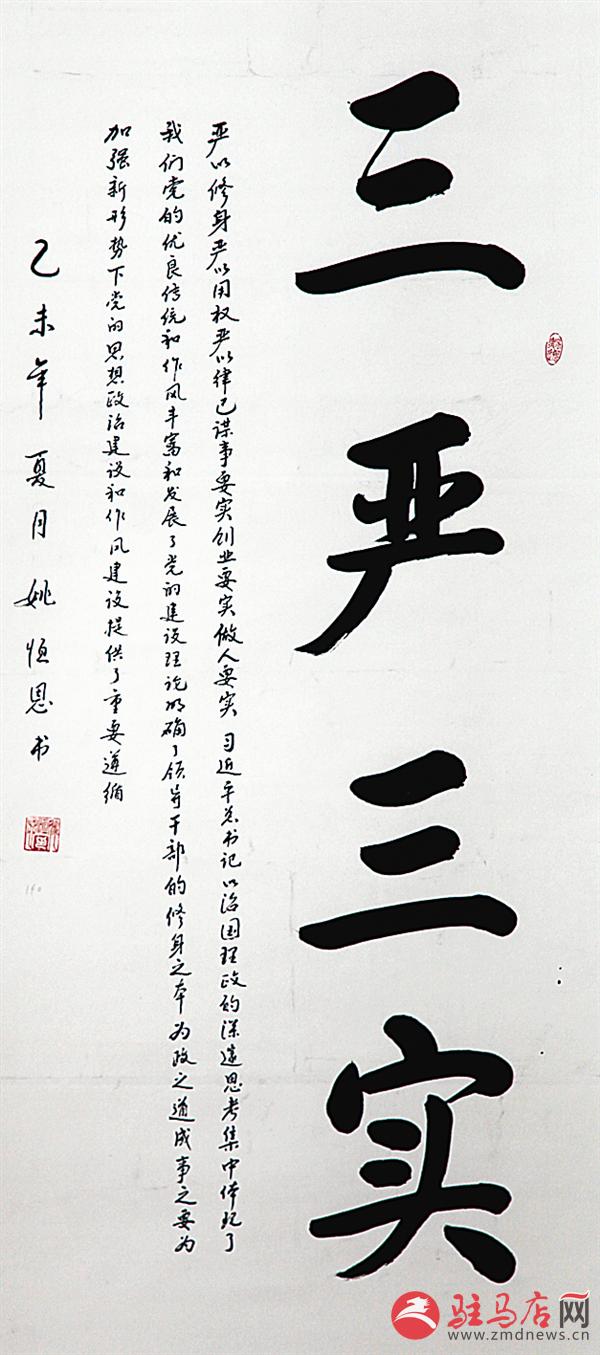 三严三实
严以修身严以用权严以律己谋事要实创业要实做人要实 习近平总书记以治国理政的深远思考集中体现了
我们党的优良传统和作风丰富和发展了党的建设理论明确了领导干部的修身之本为政之道成事之要为
加强新形势下党的思想政治建设和作风建设提供了重要遵循
乙未年夏月姚恒恩书
驻马店网
www.zmdnews.cn